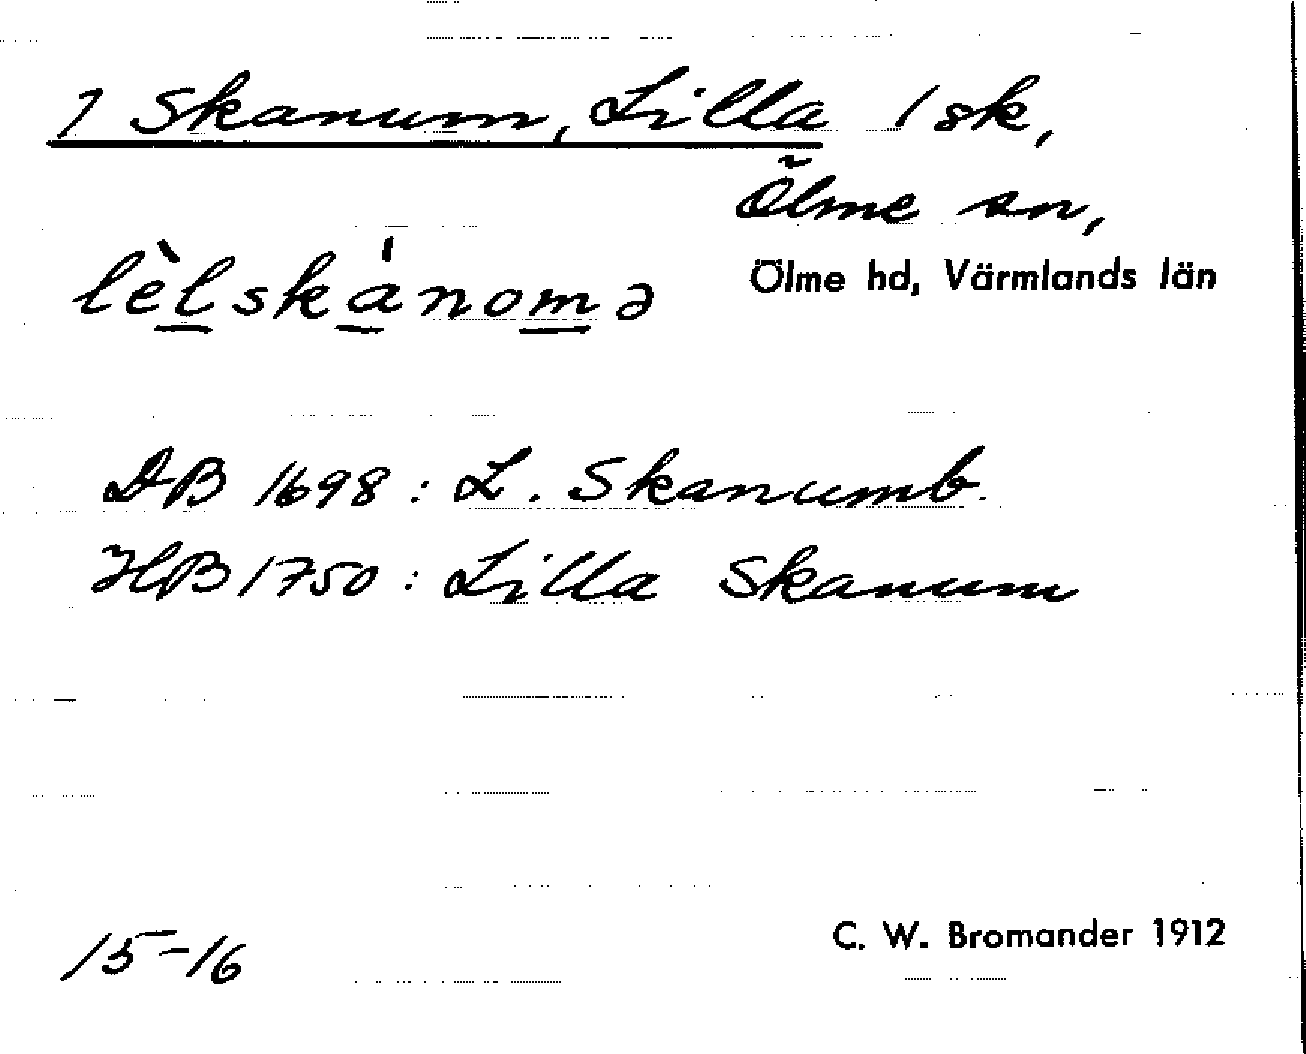 1 Skanum, Lilla 1 sk,
Ölme sn,
lèlskánomə
Ölme hd, Värmlands län
DB 1698: L. Skanumb.
HB 1750: Lilla Skanum
15-16
C. W. Bromander 1912